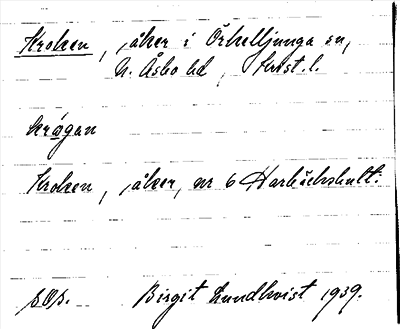 Kroken, åker i Örkelljunga sn,
N. Åsbo hd, Krist. l.
krågan
Kroken, åker, nr 6 Harbäckshult.
Birgit Lundkvist 1939.